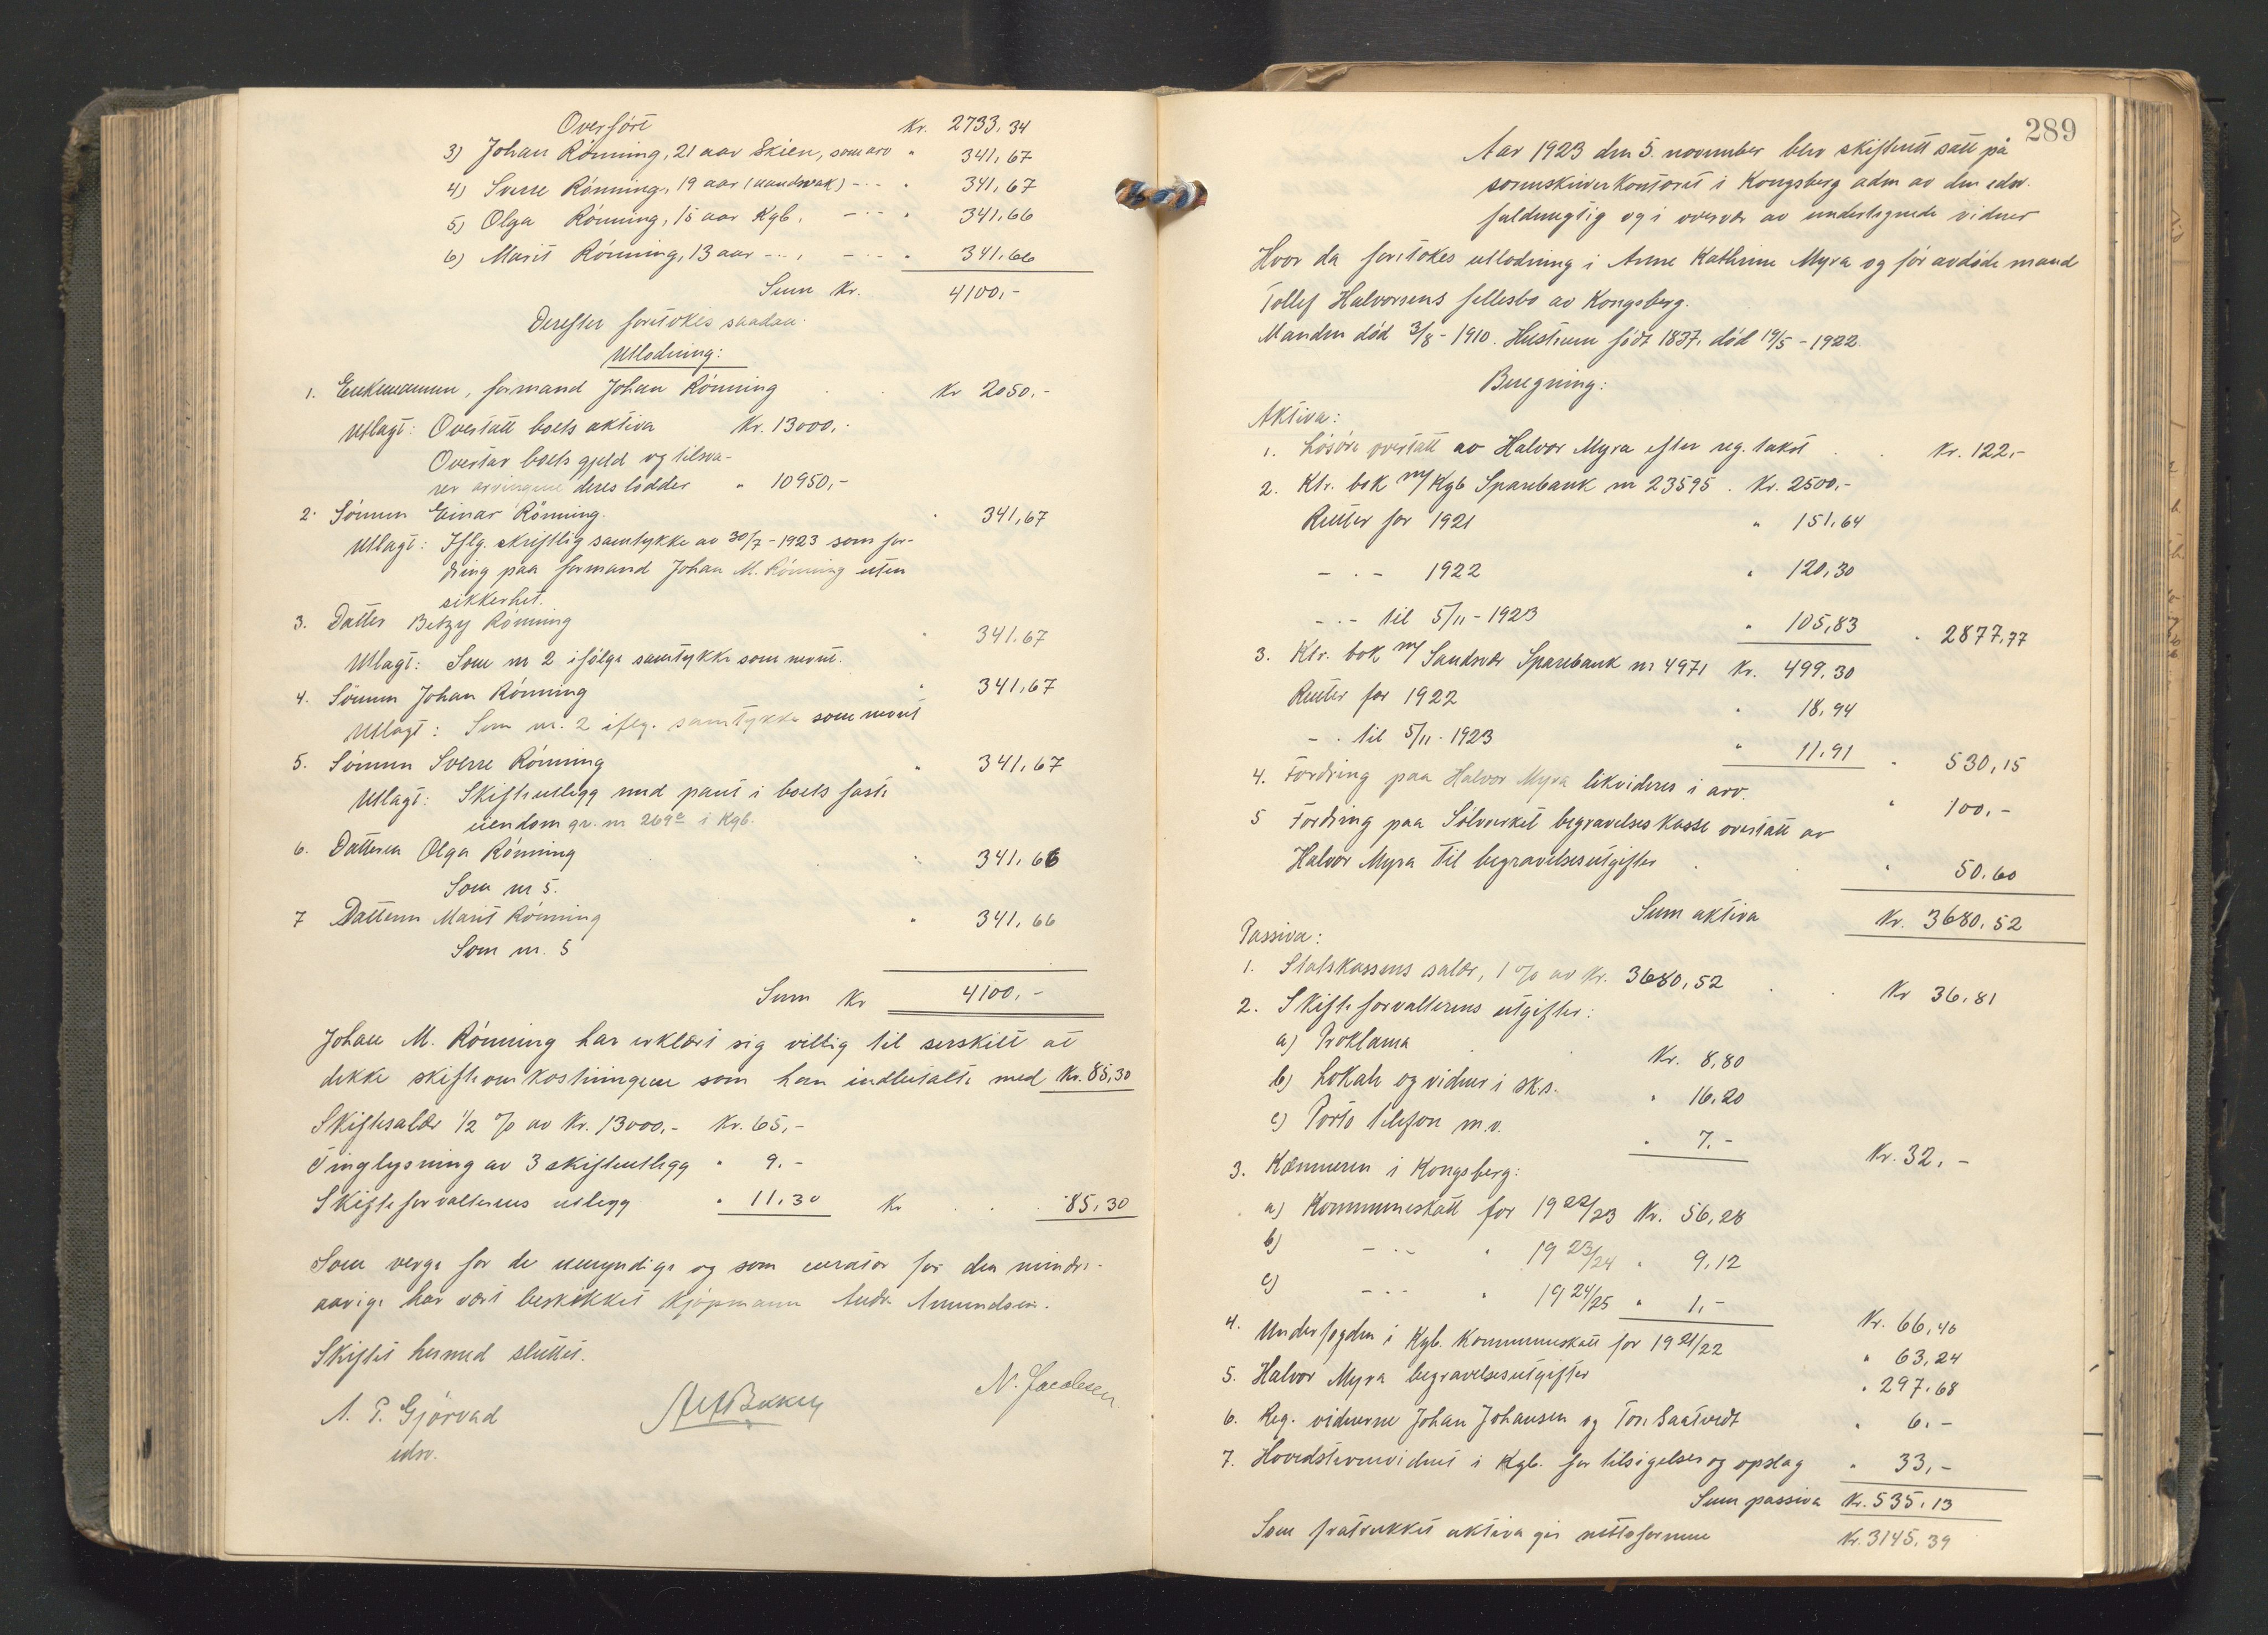 Overført Kr. 2733,34
3) Johan Rønning, 21 aar Skien, som arv " 341,67
4) Sverre Rønning, 19 aar (aandsvak) - " - " 341,67
5) Olga Rønning, 15 aar Kgb. - " - " 341,66
6) Marit Rønning, 13 aar - " - , - " - " 341,66
Sum Kr. 4100,-
Derefter foretokes saadan
Utlodning:
1. Enkemannen, formand Johan Rønning Kr 2050.-
Utlagt: Overtatt boets aktiva Kr. 13000,-
Overtar boets gjeld og tilsva-
rer arvingene deres lodder " 10950,-
2. Sønnen Einar Rønning. " 341,67
Utlagt: Iflg. skriftlig samtykke av 30/7-1923 som for-
dring paa formand Johan M. Rønning uten
sikkerhet.
3. Datter Betzy Rønning " 341,67
Utlagt: Som nr 2 ifølge samtykke som nevnt.
4. Sønnen Johan Rønning " 341,67
Utlagt: Som nr. 2 iflg. samtykke som nevnt
5. Sønnen Sverre Rønning " 341,67
Utlagt: Skifteutlegg med pant i boets faste
eiendom gr. nr 269a i Kgb.
6. Datteren Olga Rønning " 341,66
Som nr 5.
7 Datteren Marit Rønning " 341,66
Som nr. 5
Sum Kr 4100,-
Johan M. Rønning har erklært sig villig til særskilt at
dekke skifteomkostningene som han indbetalte med Kr. 85,30
Skiftesalær 1/2 % av Kr. 13000,- Kr. 65,-
Tinglysning av 3 skifteutlegg " 9.-
Skifteforvalterens utlegg " 11.30 Kr 85,30
Som verge for de umyndige og som curator for den mindre-
aarige har vært beskikket kjøpmann Andr. Amundsen.
Skiftet hermed sluttet.
A. T. Gjørvad N. Jacobsen
edsv.
289
Aar 1923 den 5. november blev skifterett satt på
sorenskriverkontoret i Kongsberg adm av den edsv.
fuldmegtig og i overvær av undertegnede vidner
Hvor da foretokes utlodning i Anne Kathrine Myra og før avdøde mand
Tollef Halvorsens fellesbo av Kongsberg.
Manden død 3/8-1910. Hustruen født 1837, død 19/5-1922.
Beregning:
Aktiva:
1. Løsøre overtatt av Halvor Myra efter reg. takst Kr. 122,-
2. Ktr. bok m/ Kgb Sparebank nr 23595. Kr. 2500,-
Renter for 1921 " 151,64
- " - 1922 " 120,30
- " - til 5/11-1923 " 105,83 " 2877,77
3. Ktr. bok m/ Sandsvær Sparebank nr 4971 Kr. 499,30
Renter for 1922 " 18,94
- " til 5/11-1923 " 11,91 " 530,15
4. Fordring paa Halvor Myra likvideres i arv. " 100,-
5 Fordring paa Sølvverket begravelseskasse overtatt av
Halvor Myra til begravelsesutgifter " 50.60
Sum aktiva Kr. 3680,52
Passiva:
1. Statskassens salær, 1 % av Kr. 3680,52 Kr 36,81
2. Skifteforvalterens utgifter:
a) Proklama Kr. 8,80
b) Lokale og vidner i sk.s. " 16.20
c) Porto telefon m.v. " 7.- Kr. 32,-
3. Kemneren i Kongsberg:
a) Kommuneskatt for 1922/23 Kr. 56,28
b) - " - " 1923/24 " 9,12
c) - " - " 1924/25 " 1,- Kr. 66,40
4. Underfogden i Kgb. Kommuneskatt for 1921/22 " 63,24
5. Halvor Myra begravelsesutgifter " 297.68
6. Reg. vidnerne Johan Johansen og Tor. Saatvedt " 6.-
7. Hovedstevnevidnet i Kgb. for tilsigelser og opslag " 33,-
Sum passiva Kr. 535,13
Som fratrukket aktiva gir nettoformue Kr. 3145,39